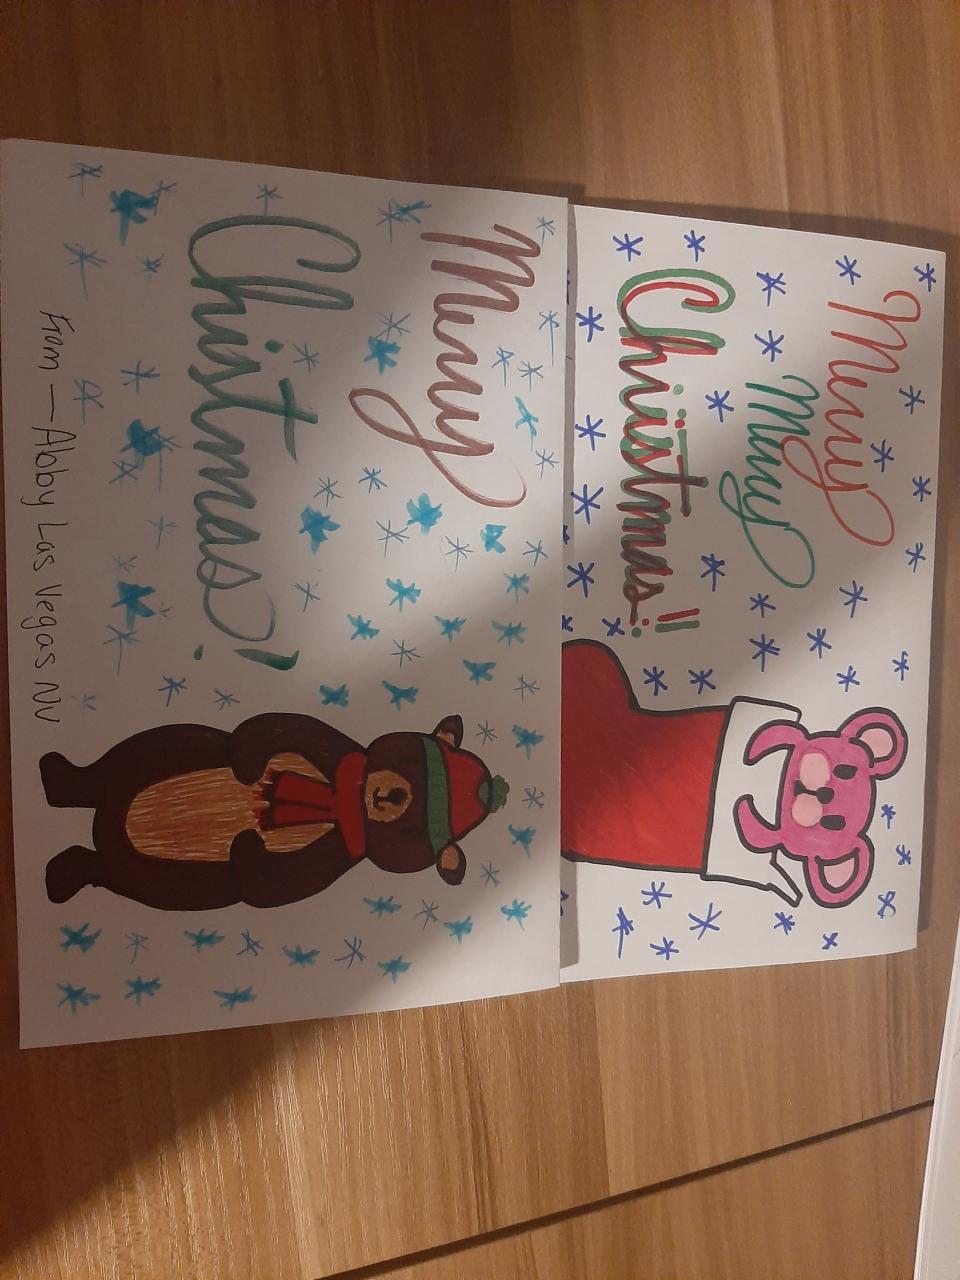 Merry
Merry
Christmas!!
Merry
Christmas!
From — Abby Las Vegas NV